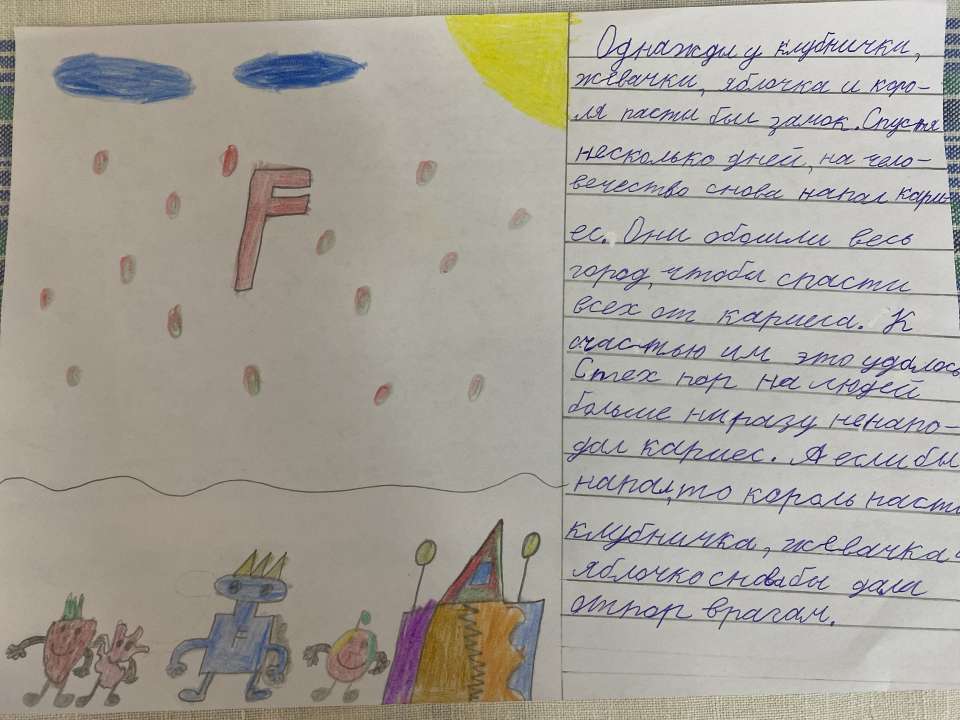 F
Однажды у клубнички,
жевачки, яблочка и коро-
ля пасты был замок. Спустя
несколько дней, на чело-
вечество снова напал кари-
ес. Они обошли весь
город, чтобы спасти
всех от кариеса. К
счастью им это удалось
Стех пор на людей
больше ниразу ненапо-
дал кариес. А если бы
напал, то король паст
клубничка, жевачка
яблочко снова бы дала
отпор врагам.